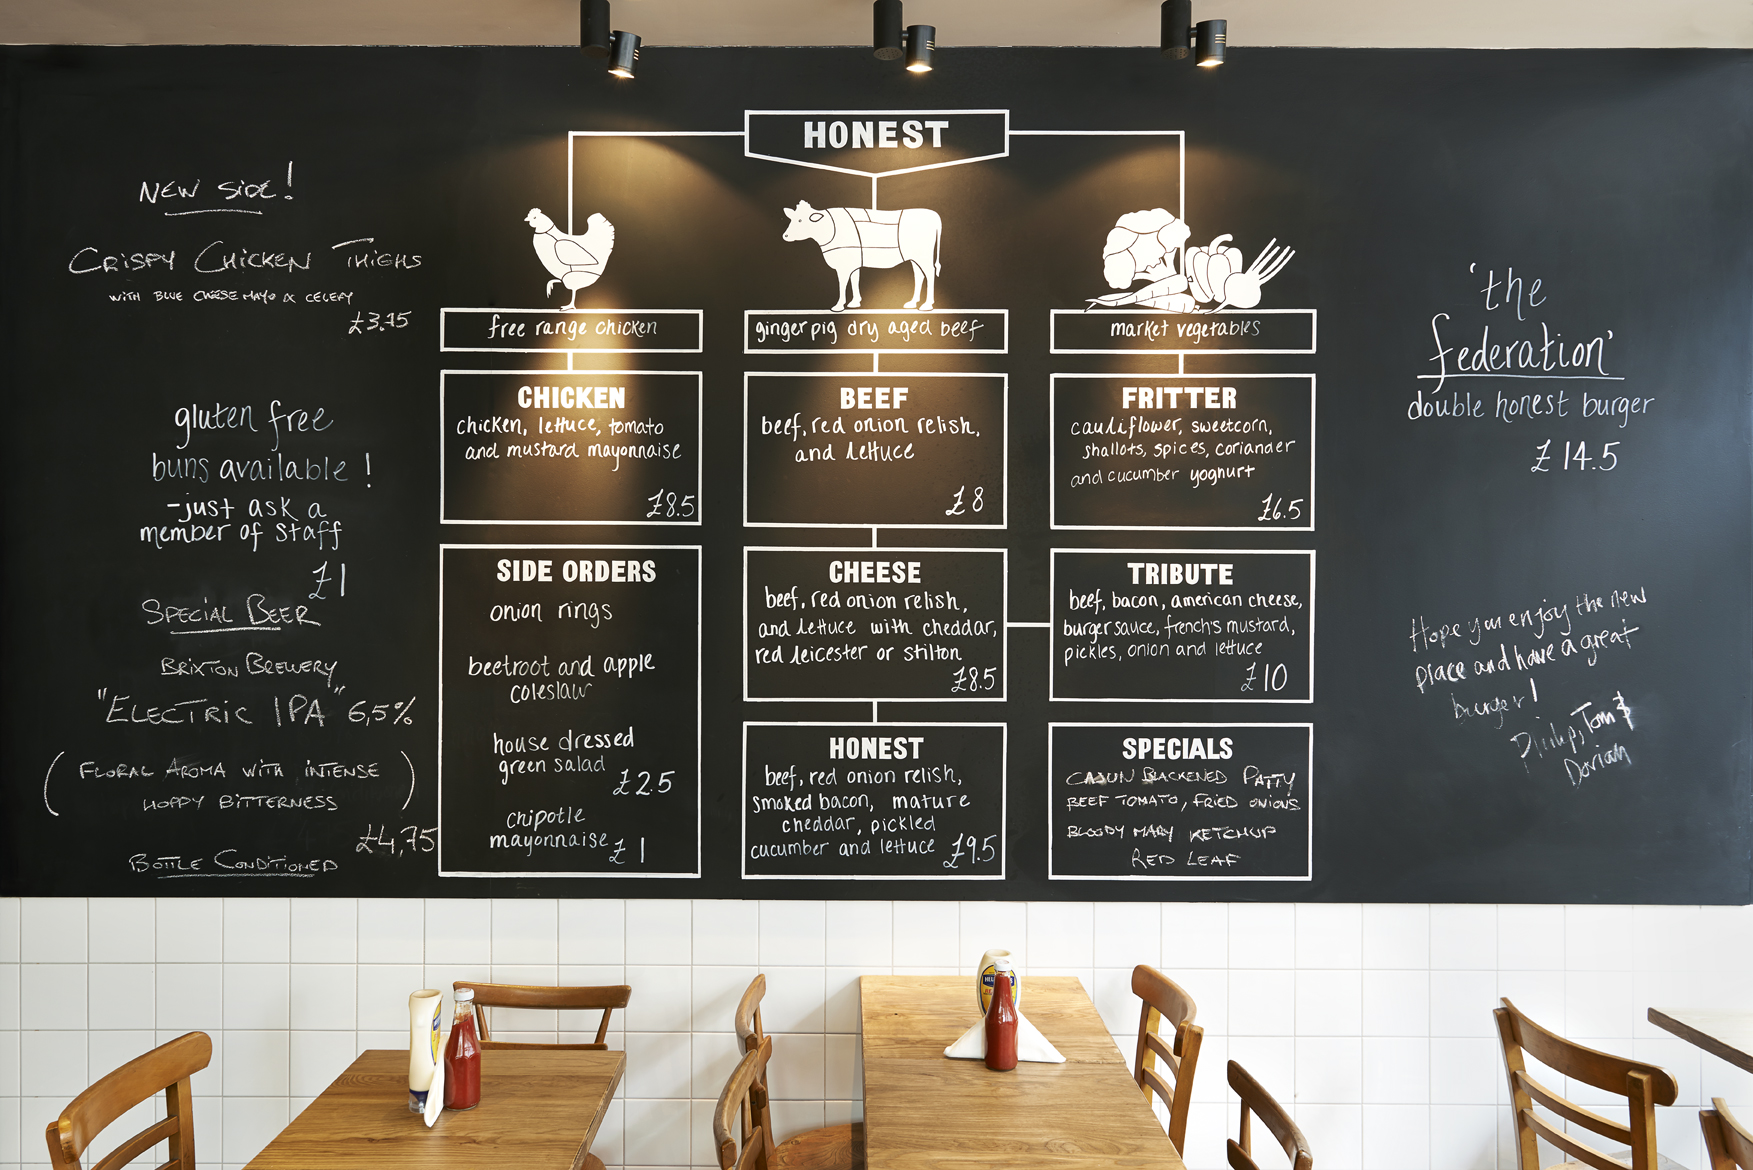 HONEST
NEW SIDE!
CRISPY CHICKEN THIGHS
WITH BLUE CHEESE MAYO & CELERY
£3.75
gluten free
buns available!
-just ask a
member of staff
£1
SPECIAL BEER
BRIXTON BREWERY
"ELECTRIC IPA" 6,5%
(FLORAL AROMA WITH INTENSE
HOPPY BITTERNESS)
£4,75
BOTTLE CONDITIONED
free range chicken
CHICKEN
chicken, lettuce, tomato
and mustard mayonnaise
£8.5
SIDE ORDERS
onion rings
beetroot and apple
coleslaw
house dressed
green salad
£2.5
chipotle
mayonnaise £1
ginger pig dry aged beef
BEEF
beef, red onion relish,
and lettuce
£8
CHEESE
beef, red onion relish,
and lettuce with cheddar,
red leicester or stilton
£8.5
HONEST
beef, red onion relish,
smoked bacon, mature
cheddar, pickled
cucumber and lettuce £9.5
market vegetables
FRITTER
cauliflower, sweetcorn,
shallots, spices, coriander
and cucumber yoghurt
£6.5
TRIBUTE
beef, bacon, american cheese,
burger sauce, french's mustard,
pickles, onion and lettuce
£10
SPECIALS
CAJUN BLACKENED PATTY
BEEF TOMATO, FRIED ONIONS
BLOODY MARY KETCHUP
RED LEAF
'the
federation'
double honest burger
£14.5
Hope you enjoy the new
place and have a great
burger!
Philip, Tom &
Dorian